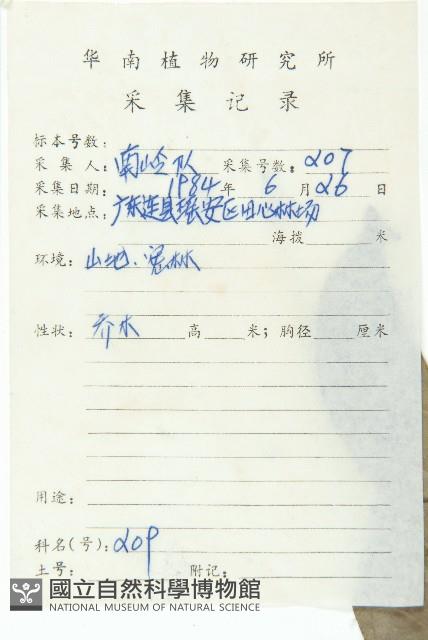 华南植物研究所
采集记录
标本号数:
采集人: 南岭队 采集号数: 207
采集日期: 1984年 6月26日
采集地点: 广东连县瑶安区田心林场
海拨 米
环境: 山地、密林
性状: 乔木 高 米; 胸径 厘米
用途:
科名(号): 209
土号: 附记:
國立自然科學博物館
NATIONAL MUSEUM OF NATURAL SCIENCE